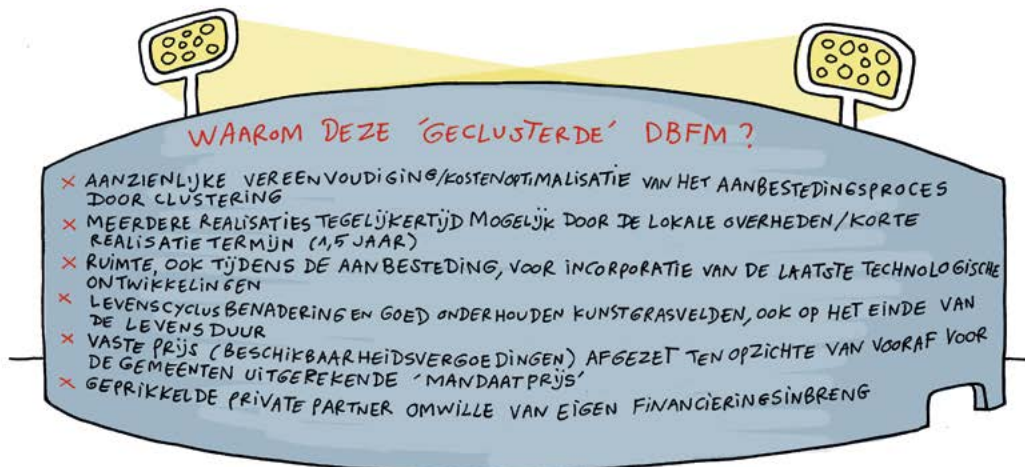 WAAROM DEZE 'GECLUSTERDE' DBFM?
× AANZIENLIJKE VEREENVOUDIGING/KOSTENOPTIMALISATIE VAN HET AANBESTEDINGSPROCES
DOOR CLUSTERING
× MEERDERE REALISATIES TEGELIJKERTIJD MOGELIJK DOOR DE LOKALE OVERHEDEN/KORTE
REALISATIETERMIJN (1,5 JAAR)
× RUIMTE, OOK TIJDENS DE AANBESTEDING, VOOR INCORPORATIE VAN DE LAATSTE TECHNOLOGISCHE
ONTWIKKELINGEN
× LEVENSCYCLUSBENADERING EN GOED ONDERHOUDEN KUNSTGRASVELDEN, OOK OP HET EINDE VAN
DE LEVENSDUUR
× VASTE PRIJS (BESCHIKBAARHEIDSVERGOEDINGEN) AFGEZET TEN OPZICHTE VAN VOORAF VOOR
DE GEMEENTEN UITGEREKENDE 'MANDAATPRIJS'
× GEPRIKKELDE PRIVATE PARTNER OMWILLE VAN EIGEN FINANCIERINGSINBRENG